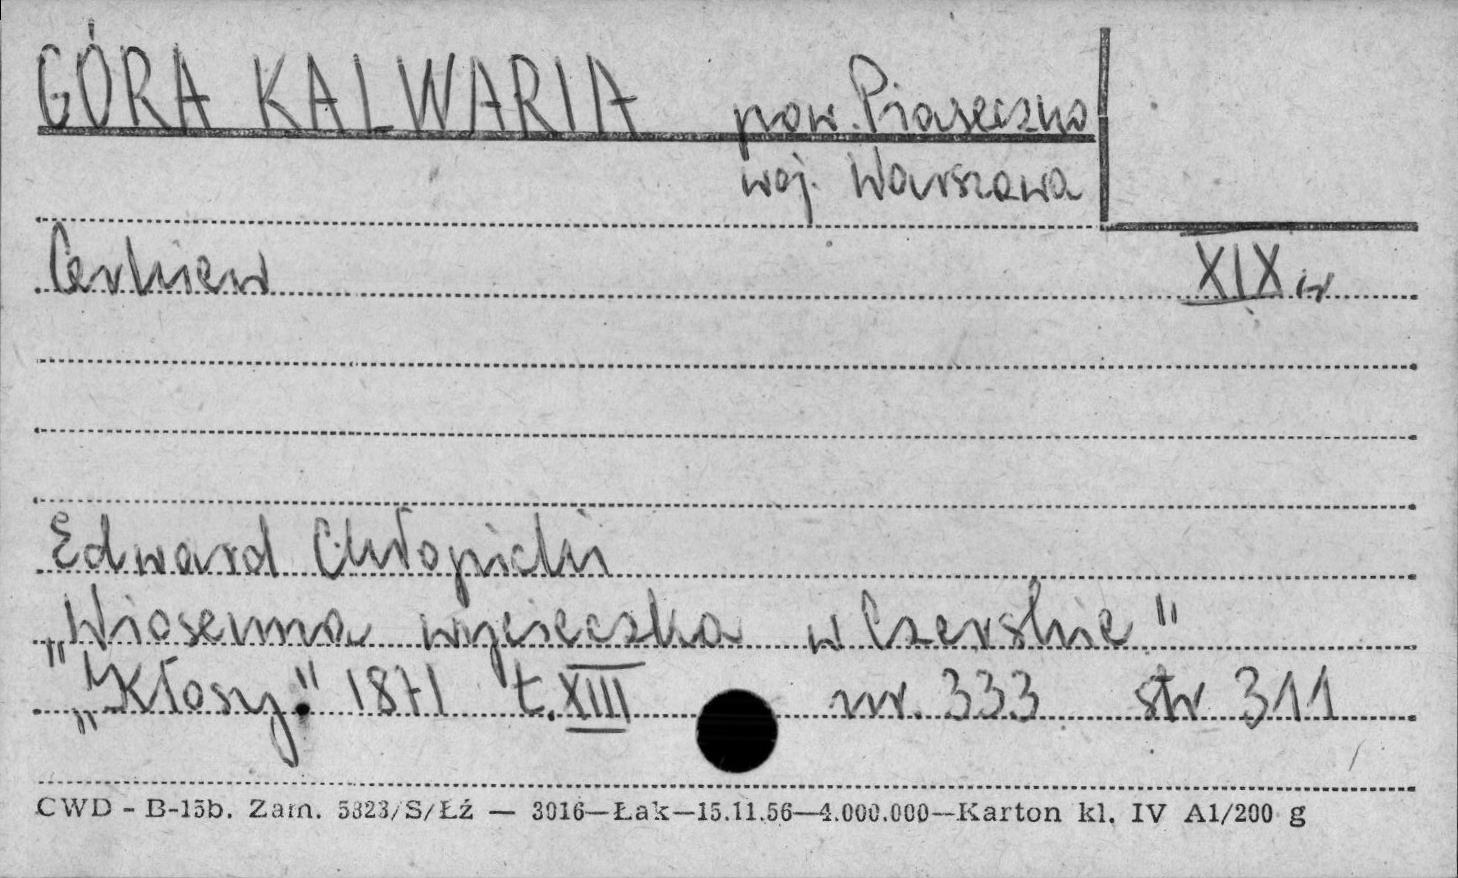 GÓRA KALWARIA pow. Piaseczno
woj. Warszawa
Cerkiew XIX w
Edward Chłopicki
„Wiosenna wycieczka w Czerskie"
„Kłosy." 1871 t. XIII nr. 333 str 311
CWD - B-15b. Zam. 5823/S/Łź — 3016—Łak—15.11.56—4.000.000—Karton kl. IV A1/200 g